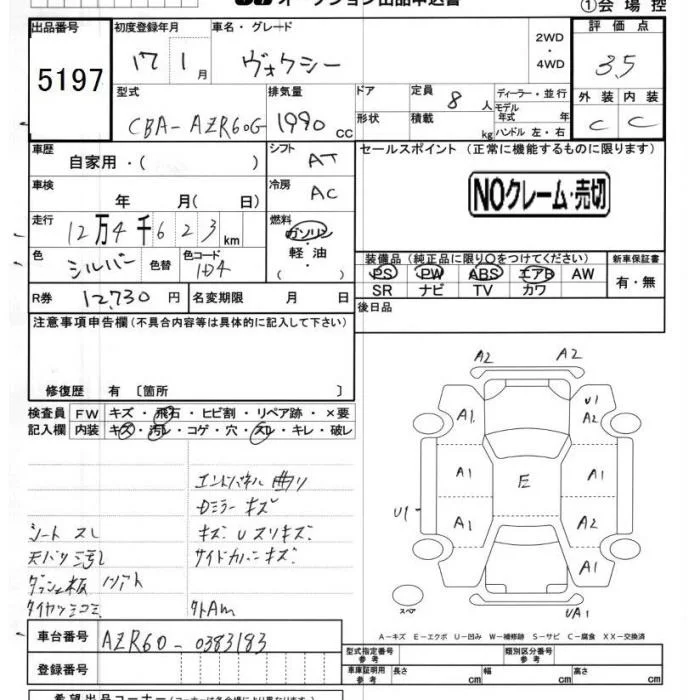 オークション出品申込書
①会場控
出品番号 初度登録年月 車名・グレード 2WD ・ 4WD 評価点
5197 17 1月 ヴォクシー 3.5
型式 排気量 ドア 定員 8人 ディーラー・並行 外装 内装
CBA-AZR60G 1990cc 形状 積載 kg モデル年式 年 ハンドル 左・右 C C
車歴 自家用・( ) シフト AT セールスポイント(正常に機能するものに限ります)
車検 年 月( 日) 冷房 AC NOクレーム・売切
走行 12万4千623km 燃料 ガソリン 軽・油 ( )
色 シルバー 色替 色コード 1D4
装備品(純正品に限り○をつけてください) 新車保証書
PS PW ABS エアB AW 有・無
SR ナビ TV カワ
R券 12,730円 名変期限 月 日 後日品
注意事項申告欄(不具合内容等は具体的に記入して下さい)
修復歴 有 〔箇所 〕
検査員 FW キズ・飛石・ヒビ割・リペア跡・×要
記入欄 内装 キズ・汚レ・コゲ・穴・スレ・キレ・破レ
エンドパネル 曲リ
Dミラー キズ
シート スレ キズ U スリキズ
天バリ 汚レ サイドカバー キズ
ダッシュ板
外Am
A2 A2
A1 U1 A2
A1 E A1
U1 A1 A2
A1
スペア UA1
A－キズ E－エクボ U－凹み W－補修跡 S－サビ C－腐食 XX－交換済
車台番号 AZR60-0383183
登録番号
型式指定番号 参考 類別区分番号 参考
車庫証明用 参考 長さ cm 幅 cm 高さ cm
希望出品コーナー